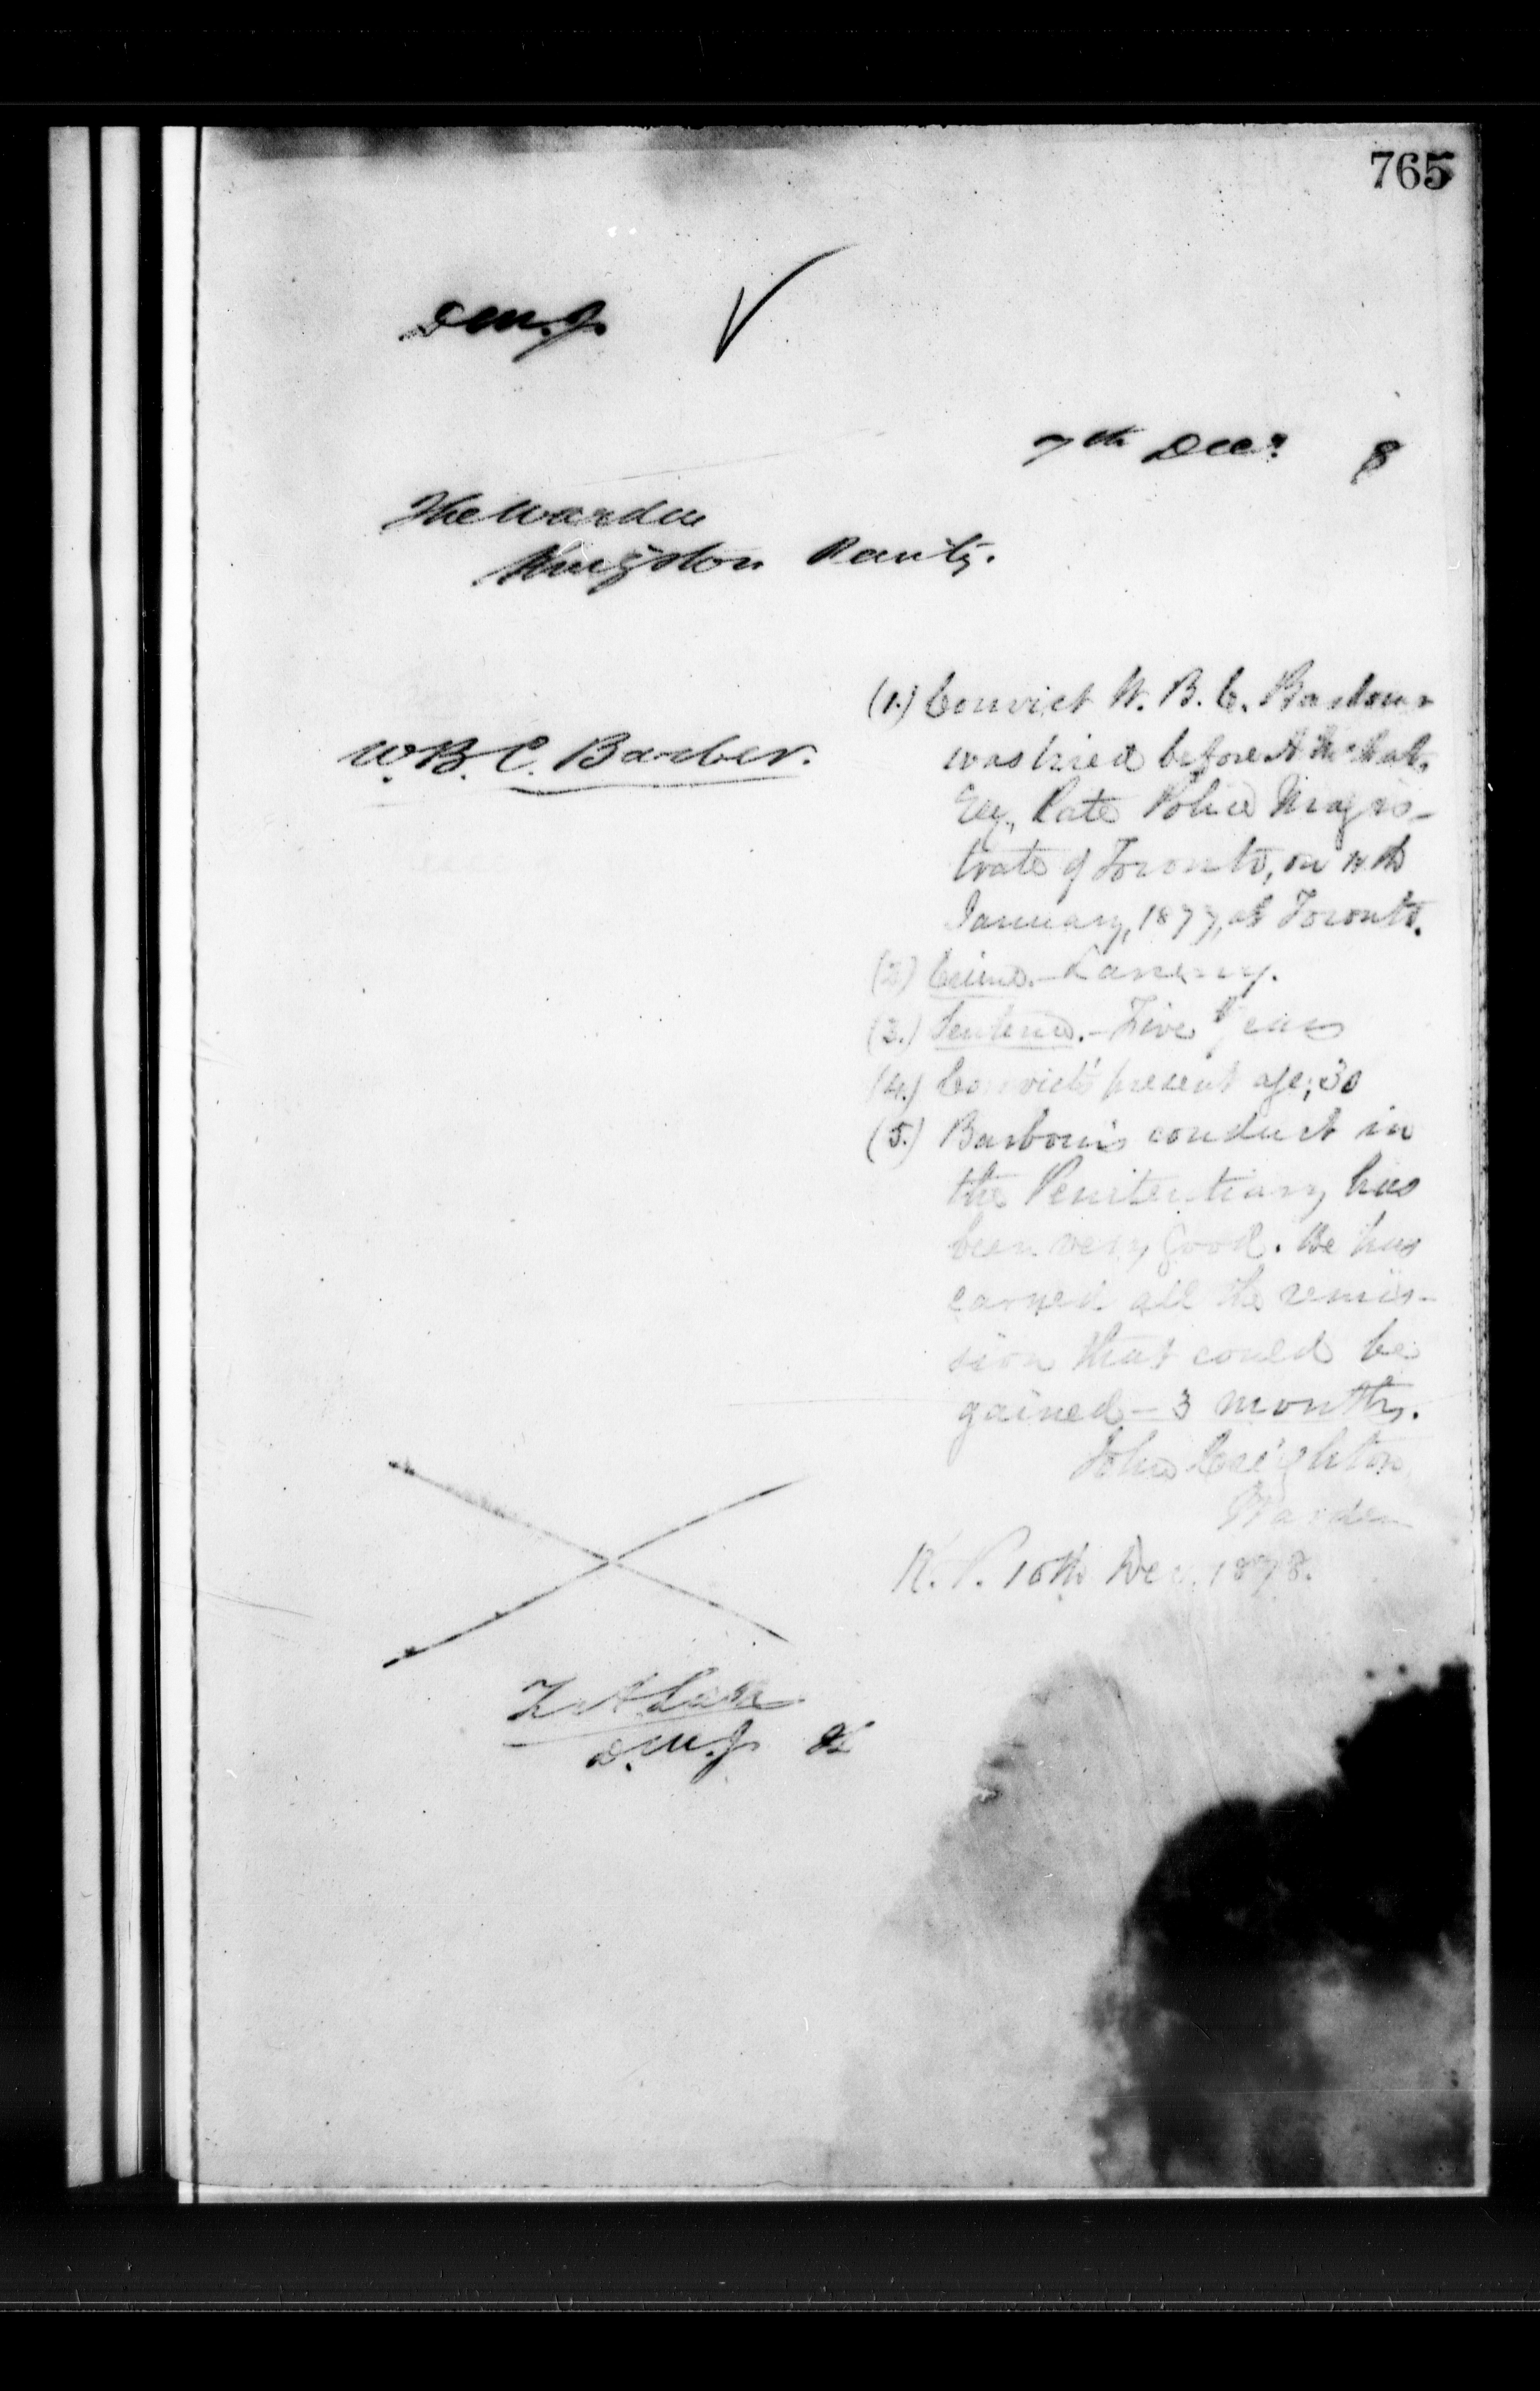 765
D.M.J.
7th Decr. 8
The Warden
Kingston Penity.
W. B. C. Barber.
(1.) Convict W. B. C. Barbour
was tried before A McNab,
Esq., Late Police Magis-
trate of Toronto, on 11th
January, 1877, at Toronto.
(2) Crime. - Larceny.
(3.) Sentence. - Five Years
(4.) Convict's present age; 30
(5.) Barbour's conduct in
the Penitentiary has
been very good. He has
earned all the remis-
sion that could be
gained - 3 months.
John Creighton
Warden
K. P. 10th Dec, 1878.
Z A Lash
D.M.J.